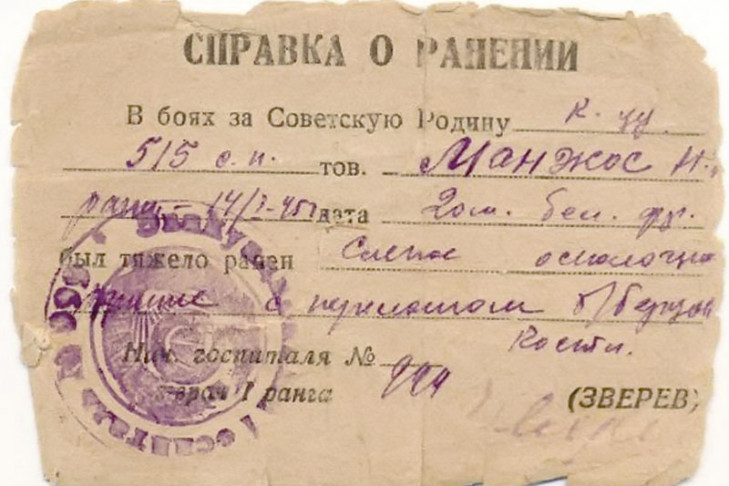 СПРАВКА О РАНЕНИИ
В боях за Советскую Родину к-ц
515 с.п. тов. Манжос Н.
ран. 14/I-45г дата 2ом. бел. фр.
был тяжело ранен Слепое осколочно
с переломом б/берцов
кости.
Нач. госпиталя №
врач I ранга (ЗВЕРЕВ)